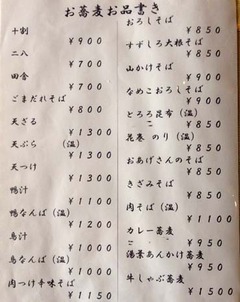 お蕎麦お品書き
十割
¥900
二八
¥700
田舎
¥700
ごまだれそば
¥800
天ざる
¥1300
天ぷら (温)
¥1300
天つけ
¥1300
鴨汁
¥1100
鴨なんば (温)
¥1200
鳥汁
¥1000
鳥なんば (温)
¥1000
肉つけ辛味そば
¥1150
おろしそば
¥850
すずしろ大根そば
¥850
山かけそば
¥900
なめこおろしそば
¥900
とろろ昆布 (温)
¥850
昆巻 のり (温)
¥800
おあげさんのそば
¥850
きざみそば
¥850
肉そば (温)
¥1100
カレー蕎麦
¥950
湯葉あんかけ蕎麦
¥950
牛しゃぶ蕎麦
¥1500